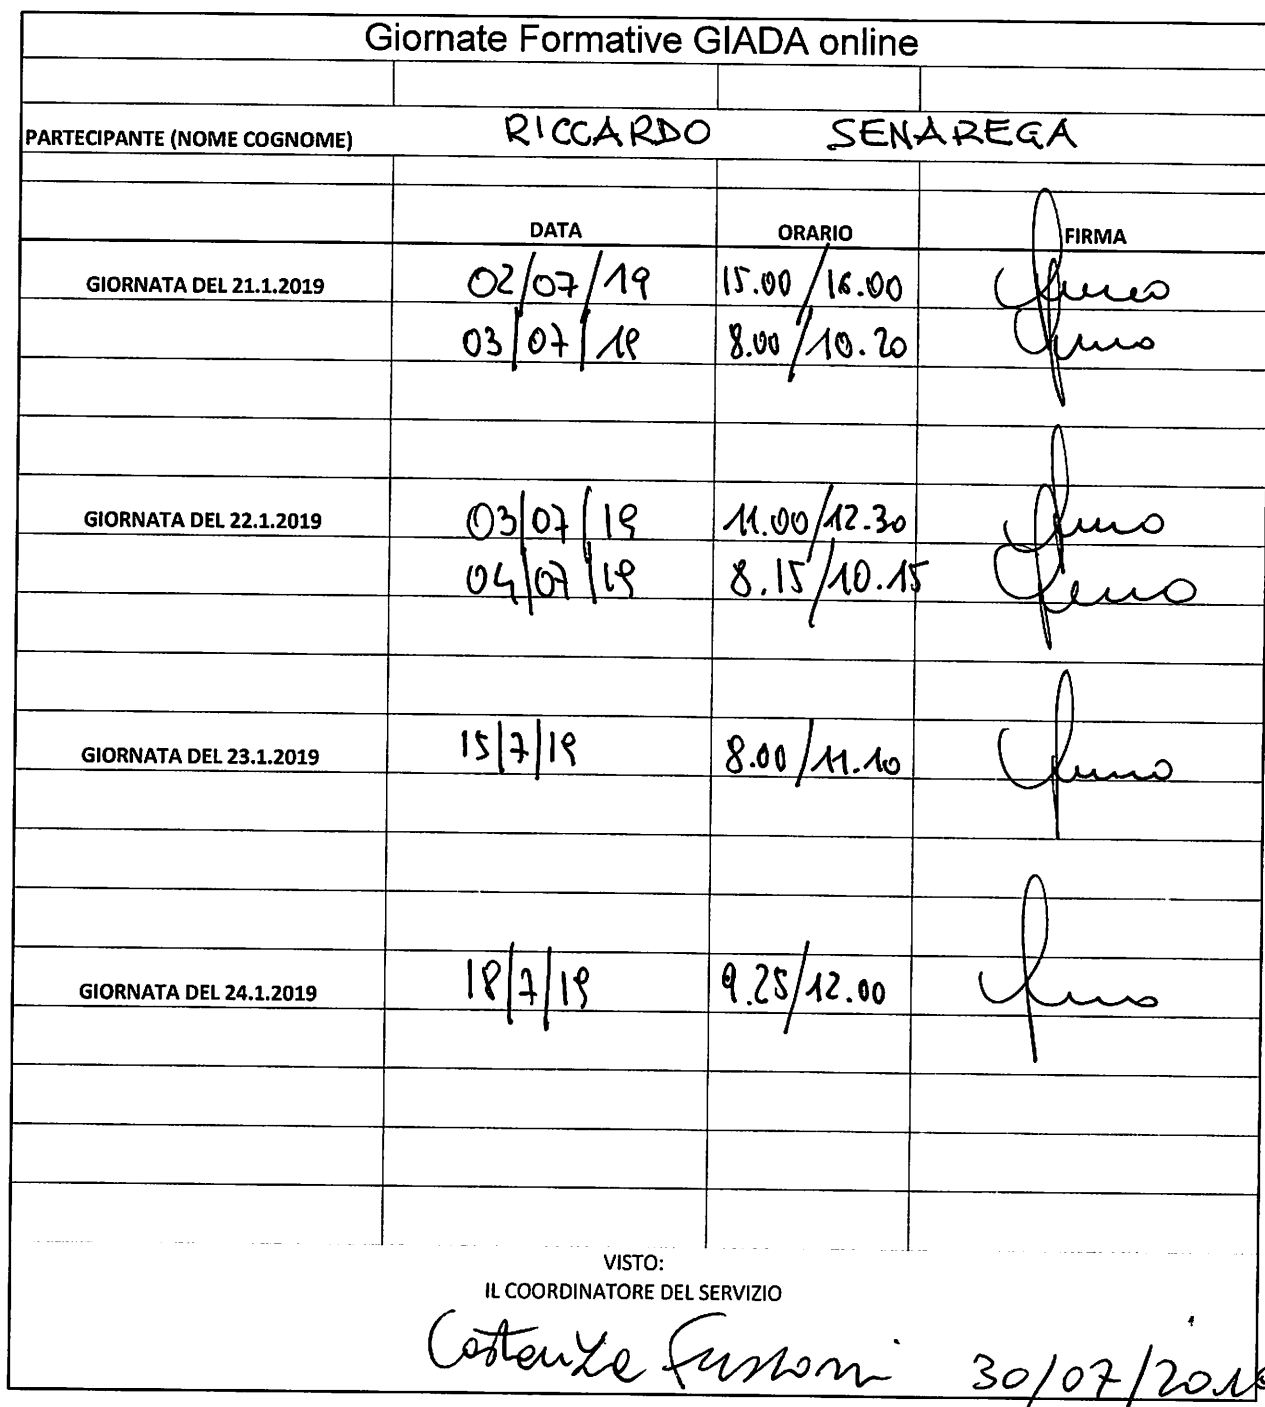 Giornate Formative GIADA online
PARTECIPANTE (NOME COGNOME) RICCARDO SENAREGA
DATA ORARIO FIRMA
GIORNATA DEL 21.1.2019 02/07/19 15.00/16.00
03/07/19 8.00/10.20
GIORNATA DEL 22.1.2019 03/07/19 11.00/12.30
04/07/19 8.15/10.15
GIORNATA DEL 23.1.2019 15/7/19 8.00/11.10
GIORNATA DEL 24.1.2019 18/7/19 9.25/12.00
VISTO:
IL COORDINATORE DEL SERVIZIO
Costanza 30/07/2019